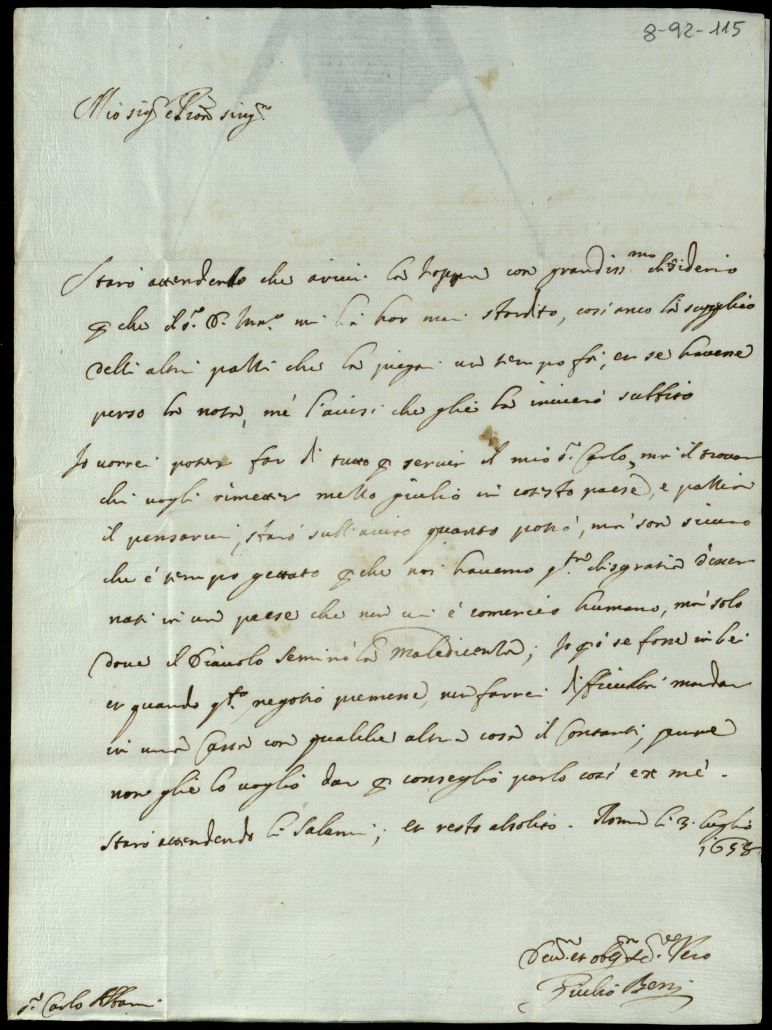 8-92-115
Mio sig.r e Pron sing.r
Starò attendendo che arivi la toppa con grandiss.mo desiderio
che il s.r D. mi hà hor mai stordito, così anco la supplico
delli altri patti che la pregai un tempo fà; et se havesse
perso la nota, me l'avisi che glie la inviero subbito
Io vorrei poter far di tutto p servir il mio s.r Carlo, mà il trovar
chi vogli rimetter mezzo giulio in cotesto paese, e
il pensarvi, starò sull'aviso quanto potrò, mà son sicuro
che è tempo gettato p che noi havemo q.ta disgratia d'esser
nati in un paese che non vi è comercio humano, mà solo
dove il Diavolo seminò la Maledicenza; Io p se fosse in lei
et quando q.to negotio premesse, non farrei difficultà mandar
in una Cassa con qualche altra cosa il Contanti, pure
non glie lo voglio dar p conseglio parlo così ex mé.
Starò attendendo li Salami; et resto al solito. Roma li 3. luglio
1658
Dev.mo et oblig.mo Ser.re Vero
Giulio Beni
s.r Carlo Albani